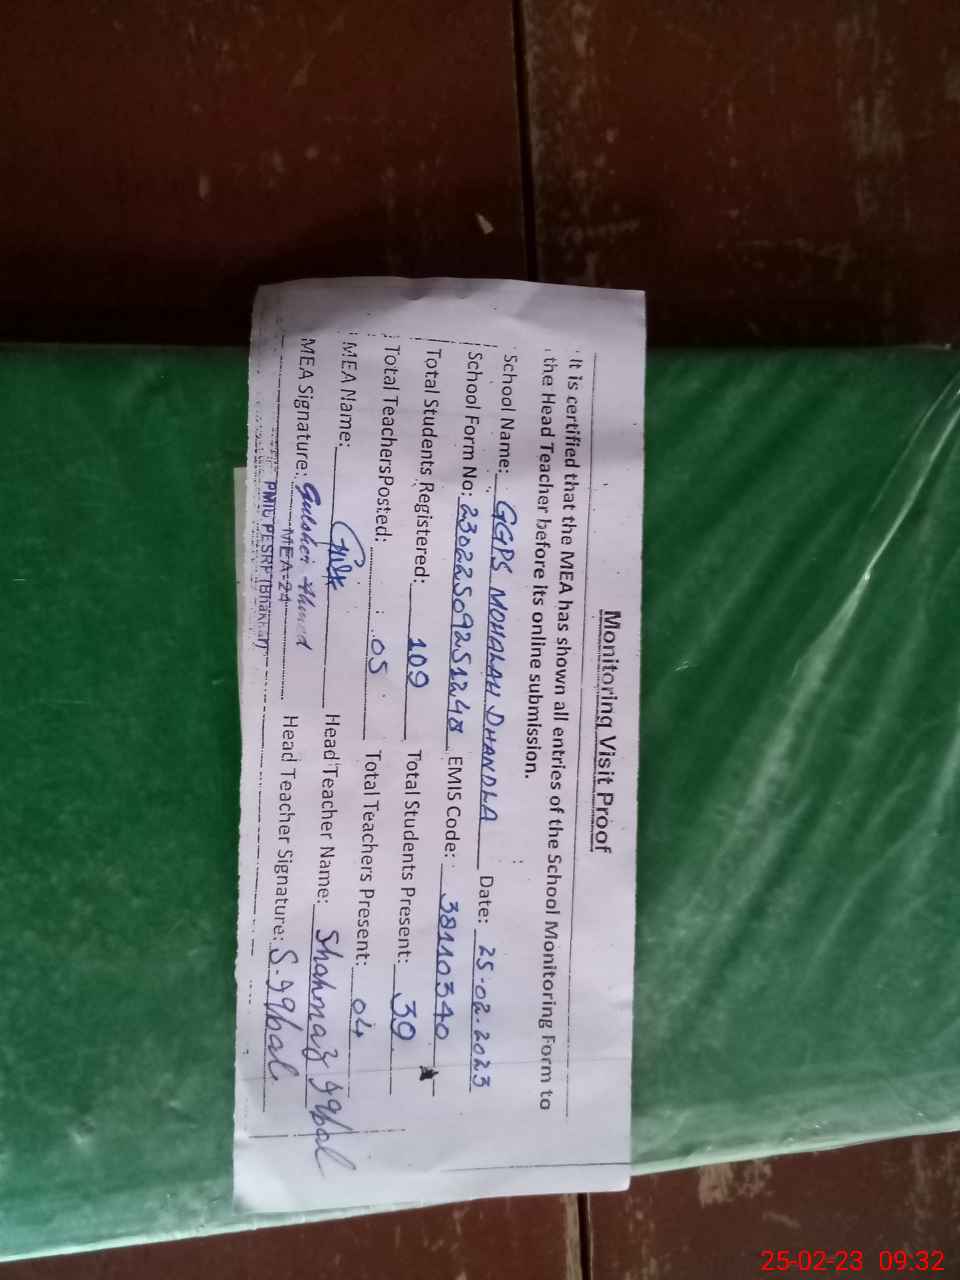 Monitoring Visit Proof
It is certified that the MEA has shown all entries of the School Monitoring Form to
the Head Teacher before its online submission.
School Name: GGPS MOHALAH DHANDLA Date: 25.02.2023
School Form No: 23022509251248 EMIS Code: 38110340
Total Students Registered: 109 Total Students Present: 39
Total TeachersPosted: 05 Total Teachers Present: 04
MEA Name: Head Teacher Name: Shahnaz Iqbal
MEA Signature: Gulsher Ahmed Head Teacher Signature: S. Iqbal
MEA-24
PMIU PESRP (Bhakkar)
25-02-23 09:32